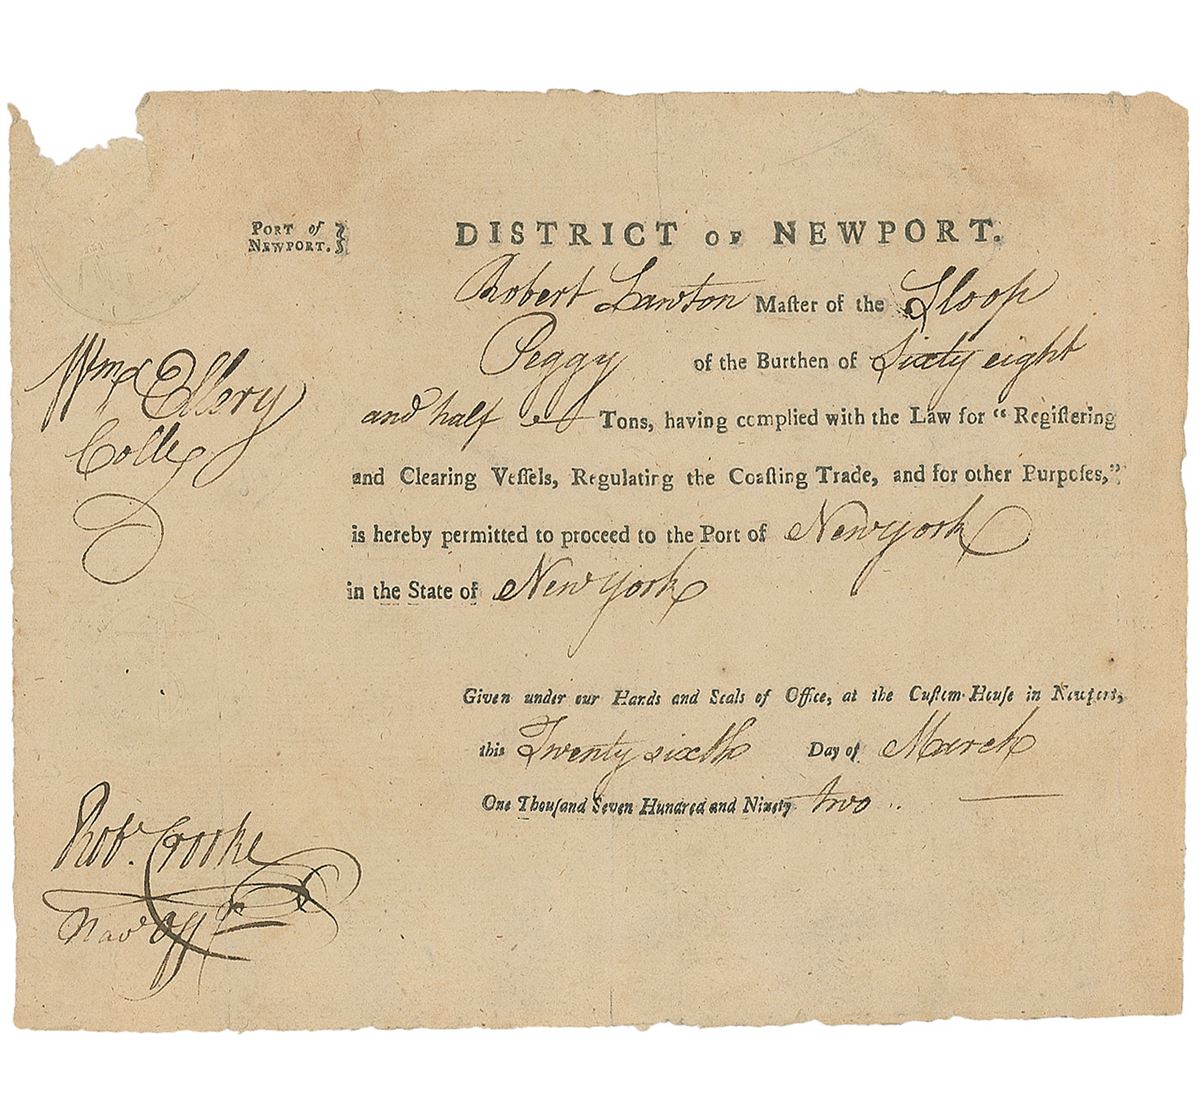 PORT of
NEWPORT.
DISTRICT OF NEWPORT.
Robert Lawton Maſter of the Sloop
Peggy of the Burthen of Sixty eight
and half Tons, having complied with the Law for “ Regiſtering
and Clearing Veſſels, Regulating the Coaſting Trade, and for other Purpoſes,”
is hereby permitted to proceed to the Port of Newyork
in the State of New York
Given under our Hands and Seals of Office, at the Cuſtom-Houſe in Newport,
this Twenty sixth Day of March
One Thouſand Seven Hundred and Ninety two
Wm Ellery
Colle
Robt. Crooke
Navl Offr